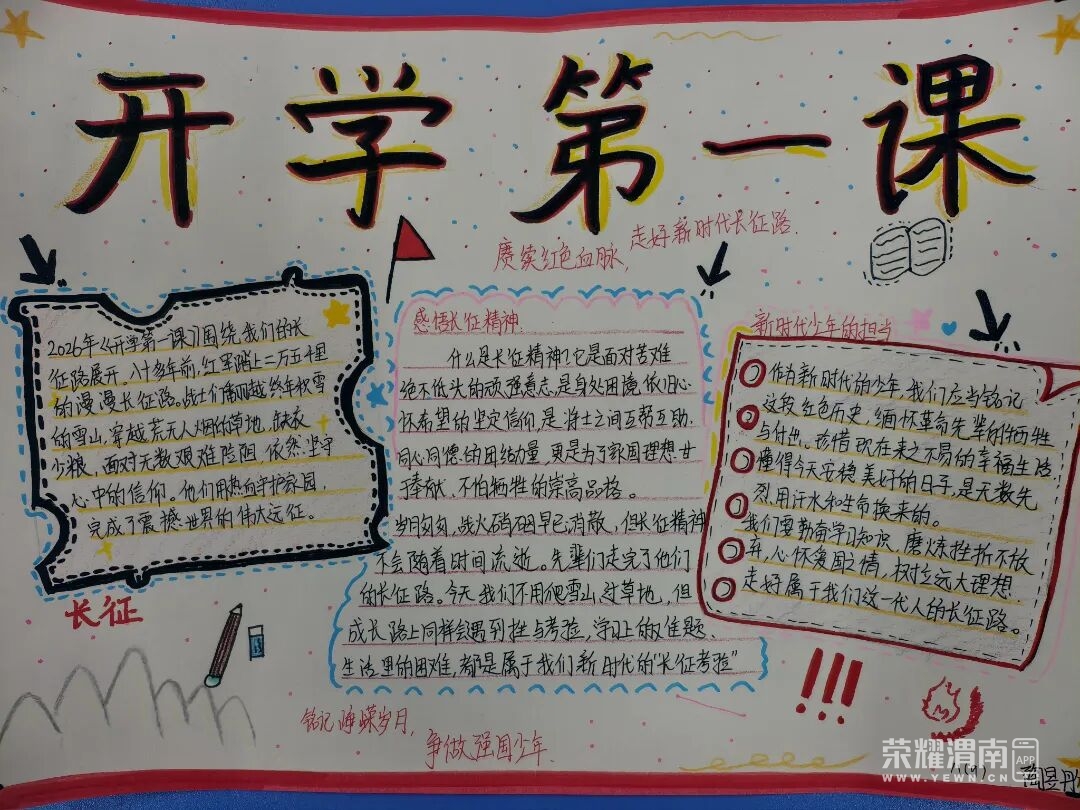 开学第一课
赓续红色血脉，走好新时代长征路.
2026年《开学第一课》围绕我们的长
征路展开。八十多年前，红军踏上二万五千里
的漫漫长征路。战士们翻越终年积雪
的雪山，穿越荒无人烟的草地，缺衣
少粮，面对无数艰难险阻，依然坚守
心中的信仰。他们用热血守护家园，
完成了震撼世界的伟大远征。
长征
感悟长征精神：
什么是长征精神？它是面对苦难
绝不低头的顽强意志，是身处困境依旧心
怀希望的坚定信仰，是将士之间互帮互助、
同心同德的团结力量，更是为了家国理想甘
于奉献、不怕牺牲的崇高品格。
岁月匆匆，战火硝烟早已消散，但长征精神
不会随着时间流逝。先辈们走完了他们
的长征路。今天我们不用爬雪山、过草地，但
成长路上同样会遇到挫与考验，学习上的难题、
生活里的困难，都是属于我们新时代的“长征考验”
新时代少年的担当
作为新时代的少年，我们应当铭记
这段红色历史，缅怀革命先辈的牺牲
与付出。珍惜现在来之不易的幸福生活，
懂得今天安稳美好的日子，是无数先
烈用汗水和生命换来的。
我们要勤奋学习知识，磨炼挫折不放
弃，心怀爱国之情，树立远大理想
走好属于我们这一代人的长征路。
!!!
铭记峥嵘岁月，
争做强国少年.
荣耀渭南
APP
WWW.YEWN.CN